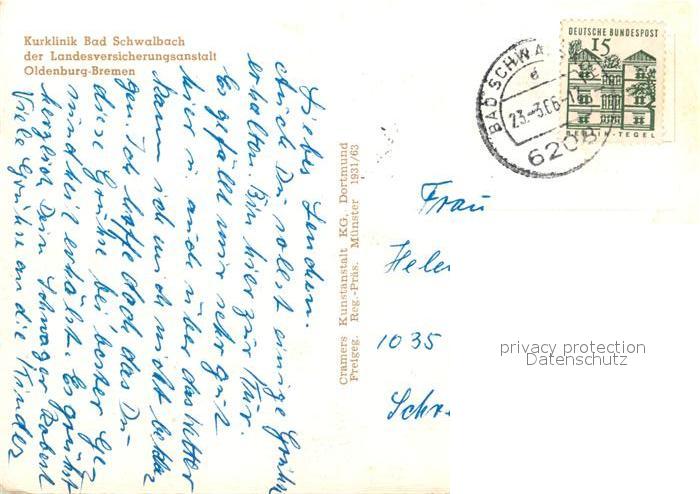 Kurklinik Bad Schwalbach
der Landesversicherungsanstalt
Oldenburg-Bremen
Liebes Lenchen.
Auch Du sollst einige Grüße
erhalten. Bin hier zur Kur.
Es gefällt mir sehr gut
hier u auch über das Wetter
kann ich mich nicht bekla
gen. Ich hoffe doch das Du
diese Grüße bei bester Ges
undheit erhälst. Es grüßt
herzlich Dein Schwager Robert
Viele Grüße an die Kinder
Cramers Kunstanstalt KG, Dortmund
Freigeg. Reg.-Präs. Münster 1931/63
DEUTSCHE BUNDESPOST
15
BERLIN-TEGEL
BAD SCHWA
d
23.-3.66
6208
Frau
Hele
1035
Schr
privacy protection
Datenschutz